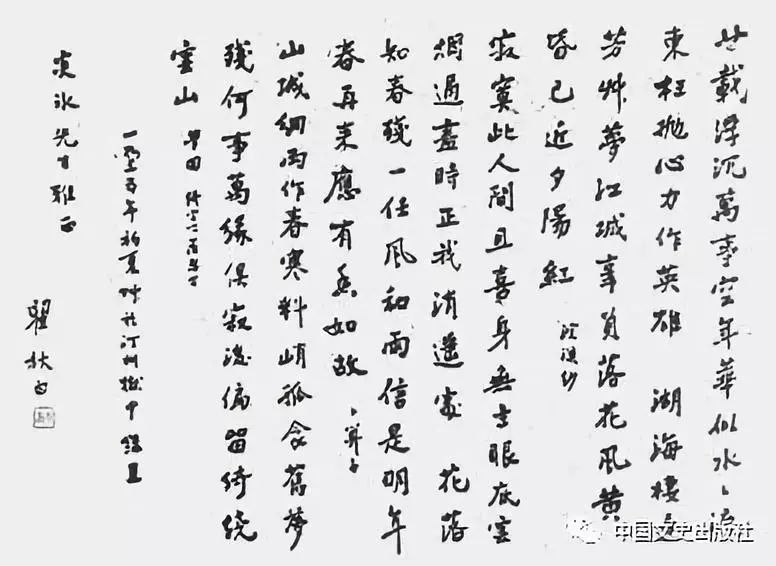 廿載浮沉萬事空年華似水、流
東枉抛心力作英雄 湖海棲遲
芳艸夢江城辜負落花風黃
昏已近夕陽紅 浣溪紗
寂寞此人間且喜身無主眼底雲
烟過盡時正我逍遥處 花落
知春殘一任風和雨信是明年
春再来應有香如故 卜算子
山城細雨作春寒料峭孤衾舊夢
殘何事萬緣俱寂後偏留綺繞
雲山
年初夏 汀州獄中
冰先生雅正
瞿秋白
中国文史出版社